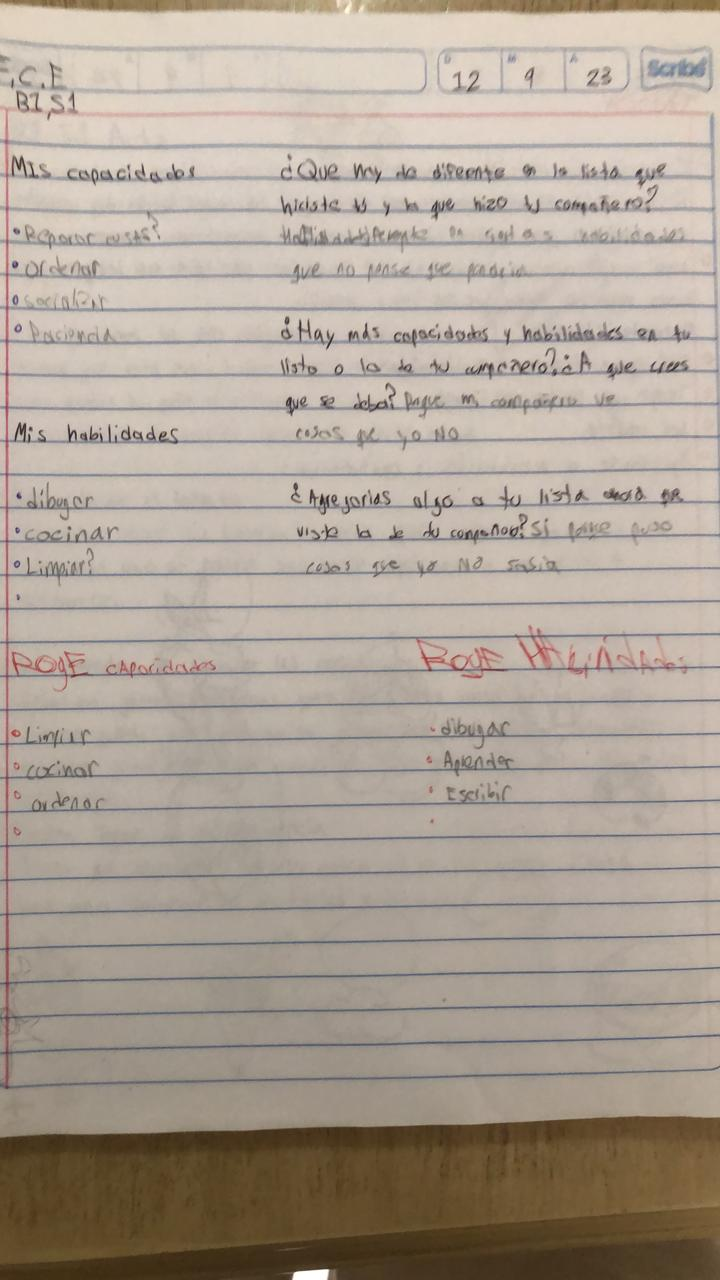 F,C,E
D M A
12 9 23
Scribe
B1,S1
Mis capacidades
• Reparar cosas?
• ordenar
• socializar
• Paciencia
Mis habilidades
• dibugar
• cocinar
• Limpiar?
•
¿Que hay de diferente en la lista que
hiciste tú y la que hizo tu compañero?
en habilidades
que no pense que
¿Hay más capacidades y habilidades en tu
lista o la de tu compañero? ¿A que crees
que se deba? Porque mi compañero ve
cosas que yo NO
¿Agregarias algo a tu lista ahora que
viste la de tu compañero? Si porque puso
cosas que yo NO sabia
ROgE cApacidades
• Limpiar
• cocinar
• ordenar
•
RogE HAbilidAdes
• dibugar
• Aprender
• Escribir
•